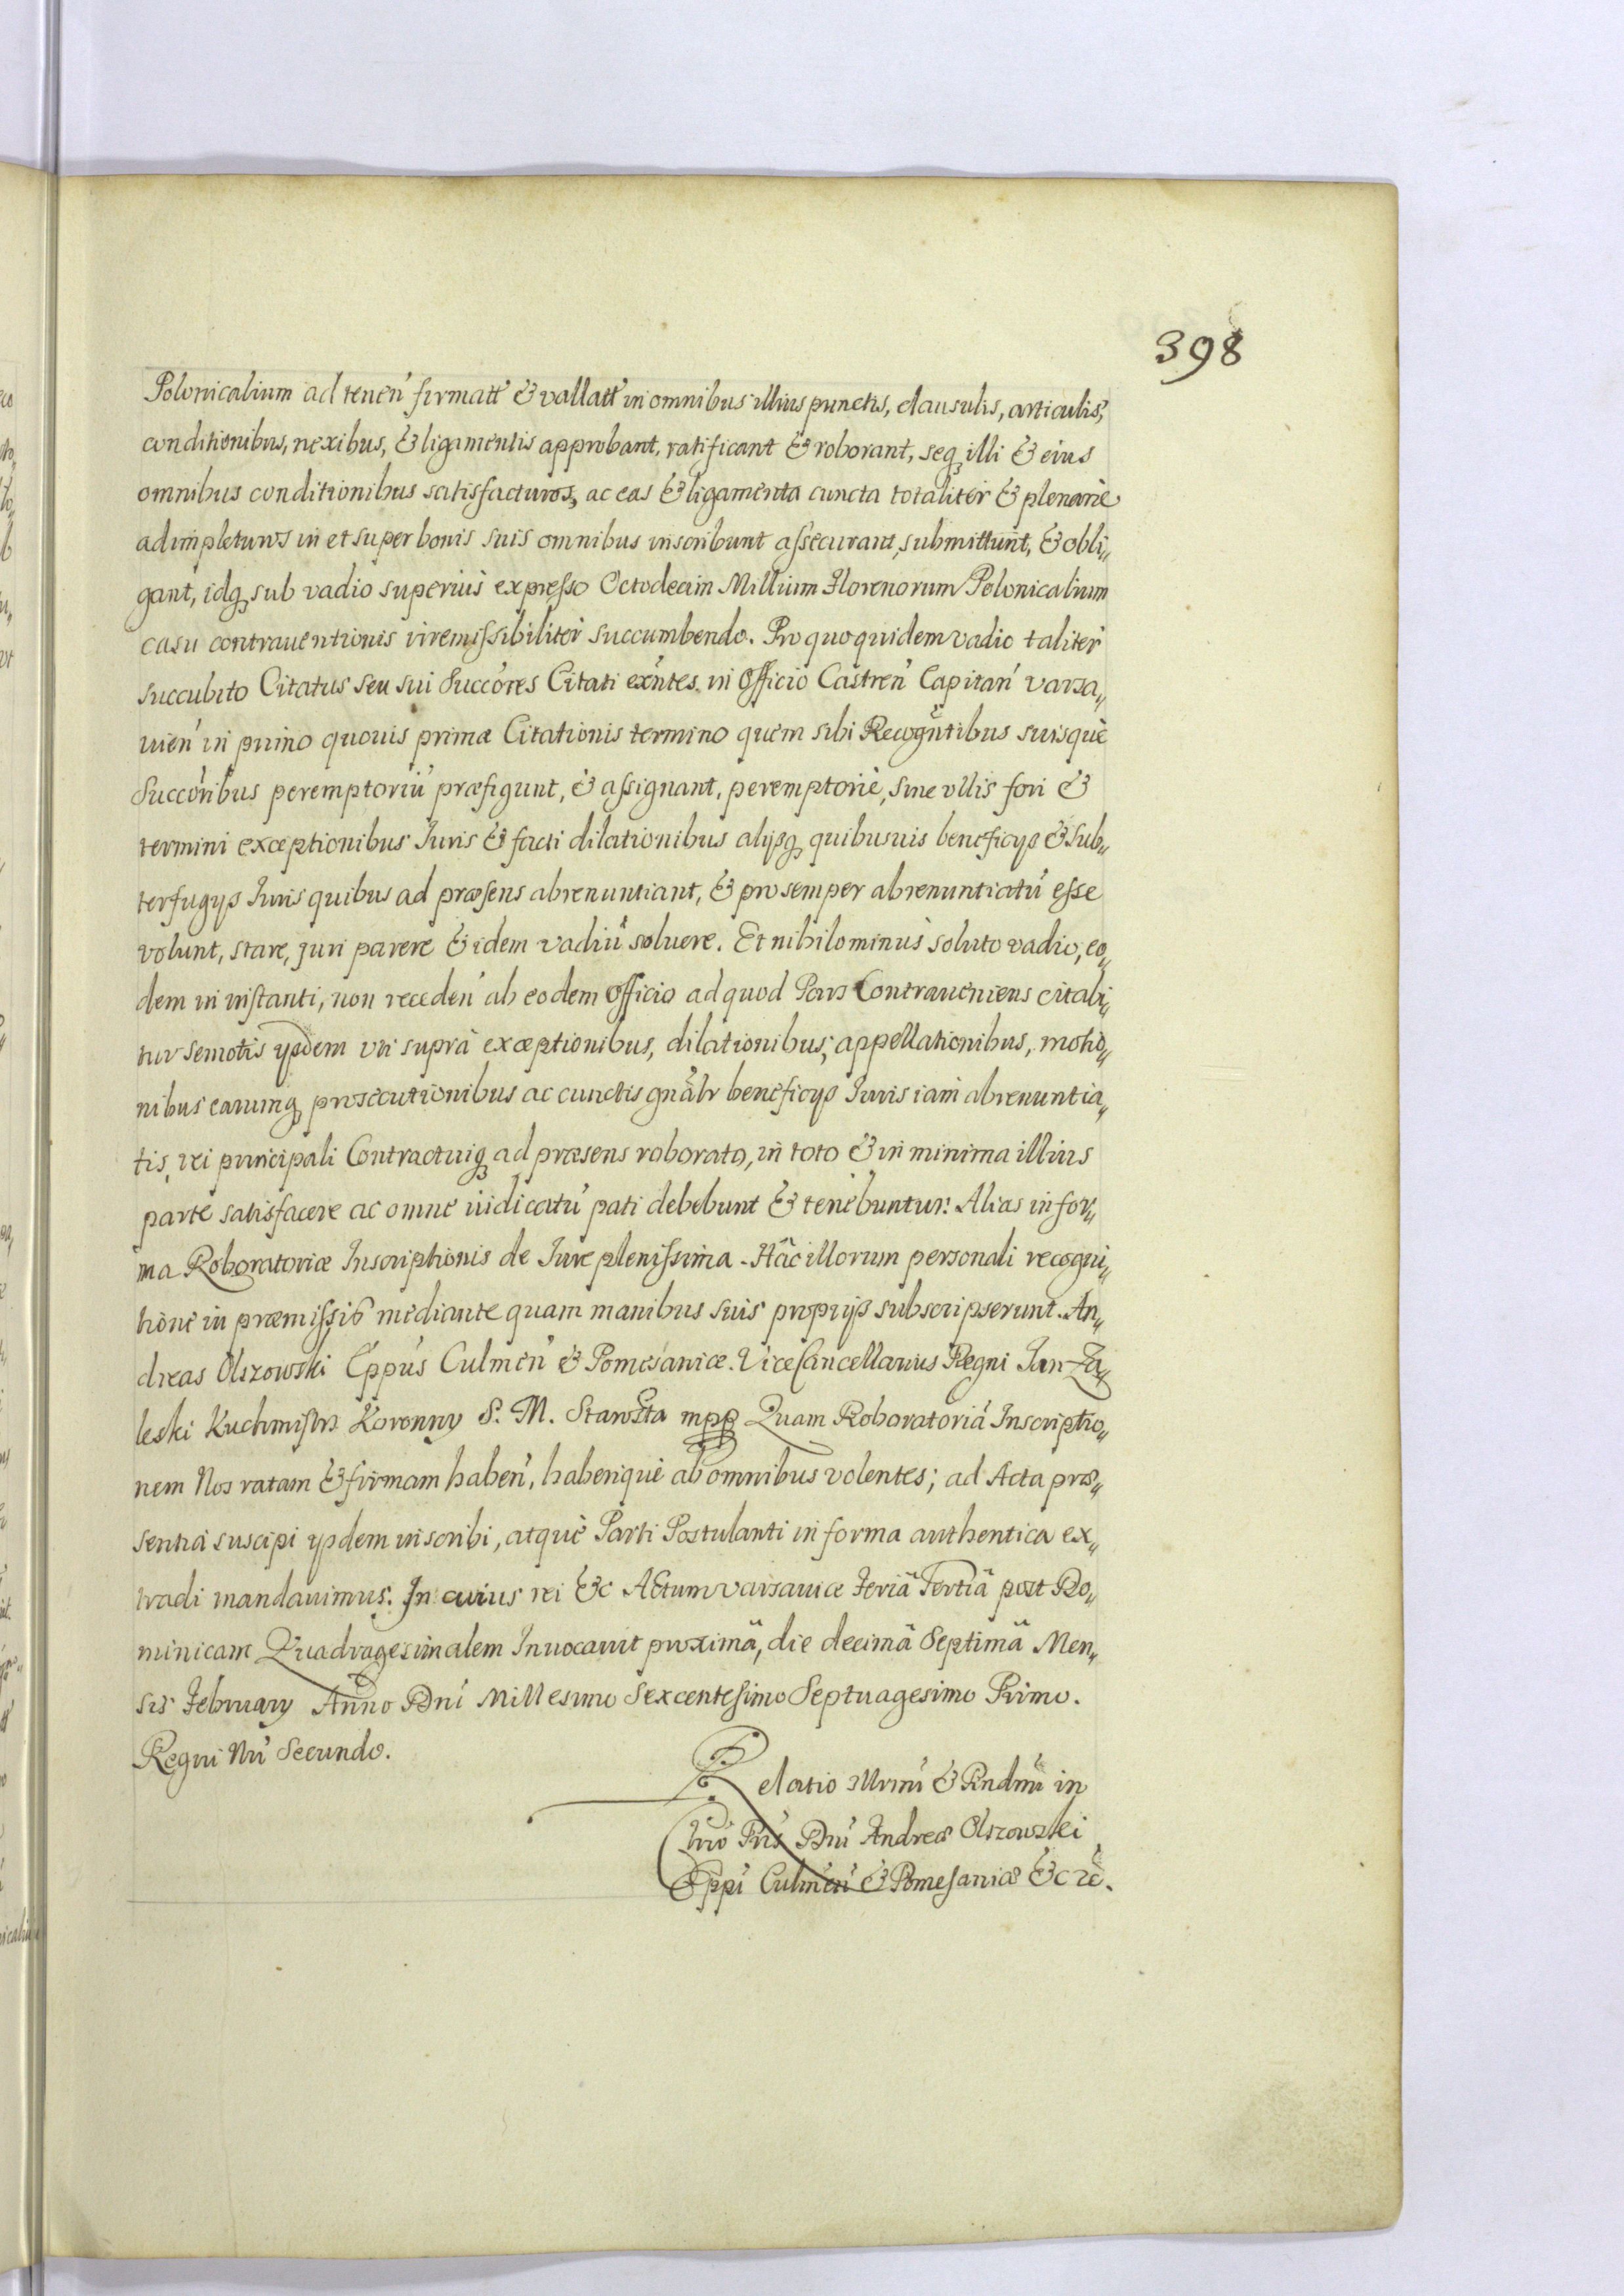 398
Polonicalium ad tenen̄ firmatt̄ & vallatt̄ in omnibus illius punctis, clausulis, articulis,
conditionibus, nexibus, & ligamentis approbant, ratificant & roborant, seq₃ illi & eius
omnibus conditionibus satisfacturos, ac eas & ligamenta cuncta totaliter & plenarie
adimpleturos in et super bonis suis omnibus inscribunt assecurant, submittunt, & obli„
gant, idq₃ sub vadio superius expresso Octodecim Millium Florenorum Polonicalium
casu contrauentionis irremissibiliter succumbendo. Pro quo quidem vadio taliter
succubito Citatus seu sui Succōres Citati exn̄tes in Officio Castren̄ Capitan̄ varsa„
uien̄ in primo quouis primæ Citationis termino quem sibi Recogn̄tibus suisque
Succōribus peremptoriū præfigunt, & assignant, peremptorie, sine ullis fori &
termini exceptionibus Iuris & facti dilationibus alijsq₃ quibusuis beneficijs & sub„
terfugijs Iuris quibus ad præsens abrenuntiant, & pro semper abrenuntiatū esse
volunt, stare, juri parere & idem vadiū soluere. Et nihilominus soluto vadio, eo„
dem in instanti, non receden̄ ab eodem Officio ad quod Pars Contraueniens citabi„
tur semotis ijsdem uti suprà exceptionibus, dilationibus, appellationibus, motio„
nibus earumq₃ prosecutionibus ac cunctis gn̄alr beneficijs Iuris iam abrenuntia„
tis, rei principali Contractuiq₃ ad præsens roborato, in toto & in minima illius
parte satisfacere ac omne iudicatū pati debebunt & tenebuntur. Alias in for„
ma Roboratoriæ Inscriptionis de Iure plenissima. Hâc illorum personali recogni„
tione in præmissis mediante quam manibus suis proprijs subscripserunt. An„
dreas Olszowski Eppūs Culmen̄ & Pomesaniæ. ViceCancellarius Regni Jan Za„
leski Kuchmistrz Koronny S. M. Starosta mpp Quam Roboratoriā Inscriptio„
nem Nos ratam & firmam haben̄, haberique ab omnibus volentes; ad Acta præ„
sentia suscipi ijsdem inscribi, atque Parti Postulanti in forma authentica ex„
tradi mandauimus. In cuius rei &c Actum varsauiæ Feriâ Tertiâ post Do„
minicam Quadragesimalem Inuocauit proximâ, die decimâ Septimâ Men„
sis February Anno Dnī Millesimo Sexcentesimo Septuagesimo Primo.
Regni Nrī Secundo.
Relatio Illrmī & Rndmī in
Chrō Pris Dnī Andreæ Olszowski
Eppī Culmen̄ & Pomesaniæ &c rē.